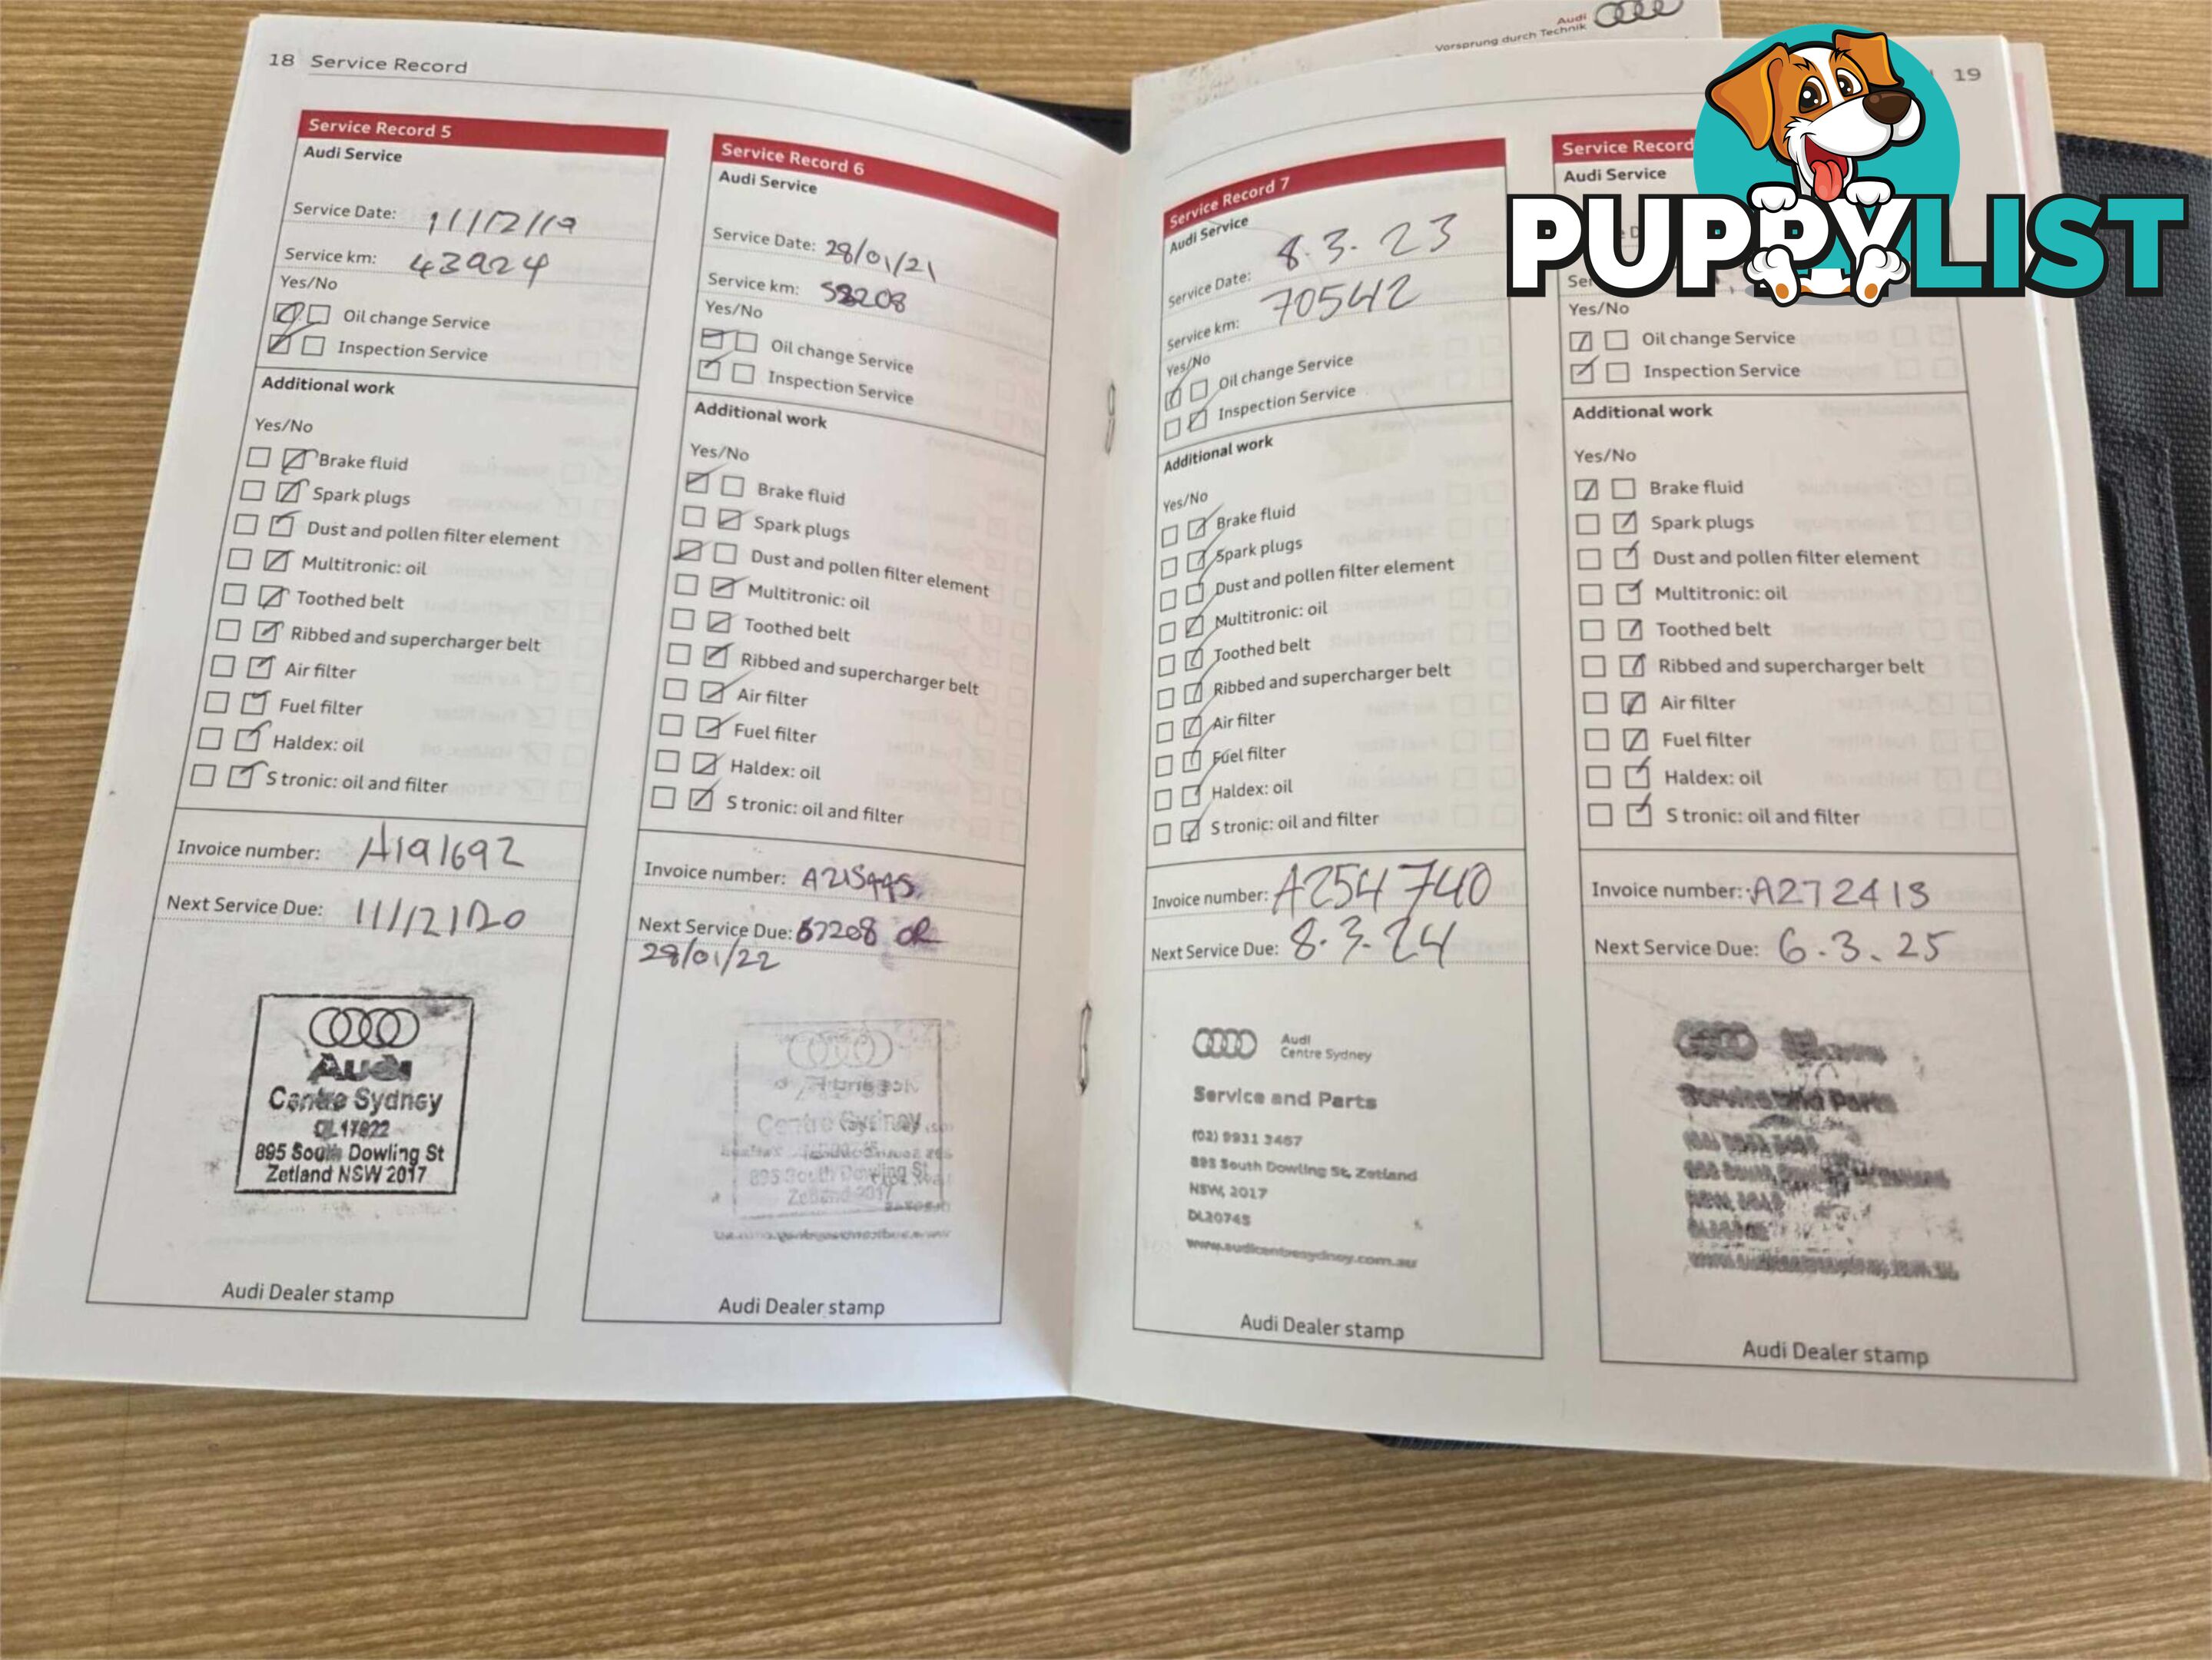 Audi
Vorsprung durch Technik
PUPPYLIST
18 Service Record
Service Record 5
Audi Service
Service Date: 11/12/19
Service km: 43924
Yes/No
Oil change Service
Inspection Service
Additional work
Yes/No
Brake fluid
Spark plugs
Dust and pollen filter element
Multitronic: oil
Toothed belt
Ribbed and supercharger belt
Air filter
Fuel filter
Haldex: oil
S tronic: oil and filter
Invoice number: A191692
Next Service Due: 11/12/20
Audi
Centre Sydney
895 South Dowling St
Zetland NSW 2017
Audi Dealer stamp
Service Record 6
Audi Service
Service Date: 28/01/21
Service km:
Yes/No
Oil change Service
Inspection Service
Additional work
Yes/No
Brake fluid
Spark plugs
Dust and pollen filter element
Multitronic: oil
Toothed belt
Ribbed and supercharger belt
Air filter
Fuel filter
Haldex: oil
S tronic: oil and filter
Invoice number:
Next Service Due: 67208 OR
28/01/22
Centre Sydney
895 South Dowling St
Zetland 2017
Audi Dealer stamp
19
Service Record 7
Audi Service
Service Date: 8.3.23
Service km: 70542
Yes/No
Oil change Service
Inspection Service
Additional work
Yes/No
Brake fluid
Spark plugs
Dust and pollen filter element
Multitronic: oil
Toothed belt
Ribbed and supercharger belt
Air filter
Fuel filter
Haldex: oil
S tronic: oil and filter
Invoice number: A254740
Next Service Due: 8.3.24
Audi
Centre Sydney
Service and Parts
(02) 9931 3467
895 South Dowling St, Zetland
NSW, 2017
DL20745
www.audicentresydney.com.au
Audi Dealer stamp
Service Record
Audi Service
Yes/No
Oil change Service
Inspection Service
Additional work
Yes/No
Brake fluid
Spark plugs
Dust and pollen filter element
Multitronic: oil
Toothed belt
Ribbed and supercharger belt
Air filter
Fuel filter
Haldex: oil
S tronic: oil and filter
Invoice number: A272413
Next Service Due: 6.3.25
Service and Parts
Audi Dealer stamp